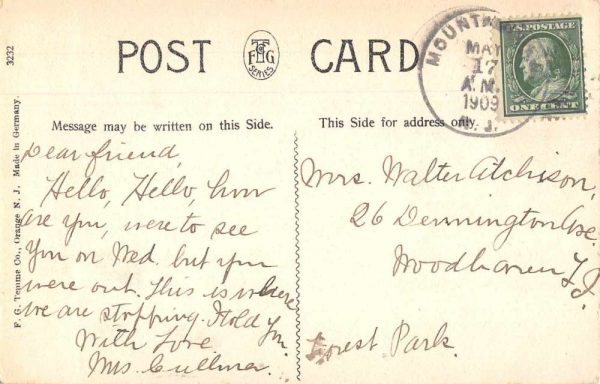 3232
POST CARD
F T C G
SERIES
MOUNT
MAY
17
A.M.
1909
N.J.
U.S. POSTAGE
ONE CENT
Message may be written on this Side.
This Side for address only.
F. G. Temme Co., Orange N. J. Made in Germany.
Dear friend,
Hello, Hello, how
are you, were to see
You on Wed. but you
were out. This is where
we are stopping. Hold
With Love
Mrs Cullmer
Mrs. Walter Atchison,
26 Dennington Ave.
Woodhaven L.I.
Forest Park.